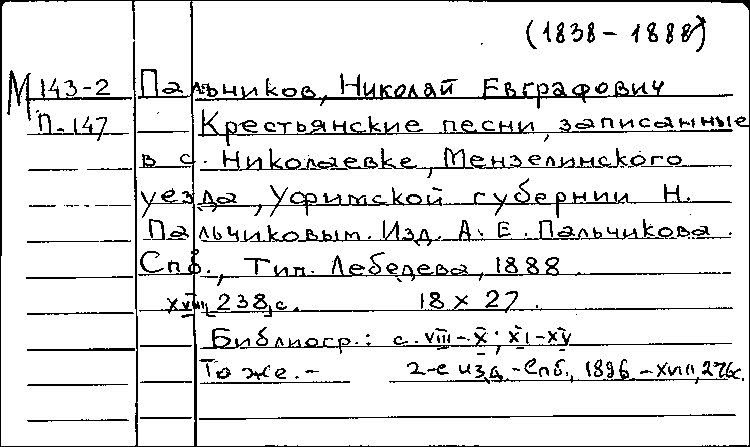 (1838 - 1888)
М 143-2 Пальчиков, Николай Евграфович
П-147 Крестьянские песни, записанные
в с. Николаевке, Мензелинского
уезда, Уфимской губернии Н.
Пальчиковым. Изд. А. Е. Пальчикова.
Спб., Тип. Лебедева, 1888
XVIII, 238, с. 18 x 27.
Библиогр.: с. VIII-X; XI-XV
То же. - 2-е изд. - Спб., 1896 - XVIII, 276с.